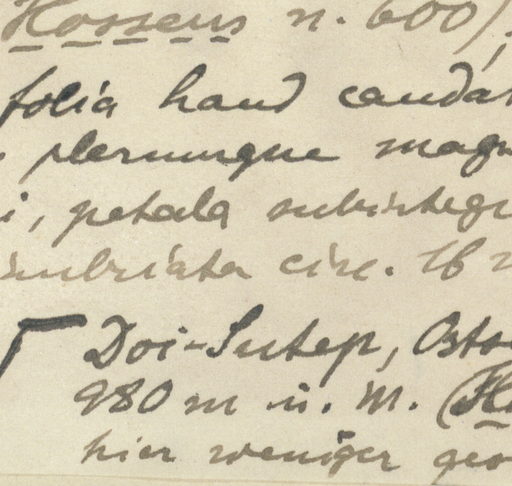 Hosseus n. 600)
folia haud caudat
plerumque mag
i, petala subintegr
imbriata circ. 16
Doi-Sutep, Osts
980 m ü. M. (
hier weniger